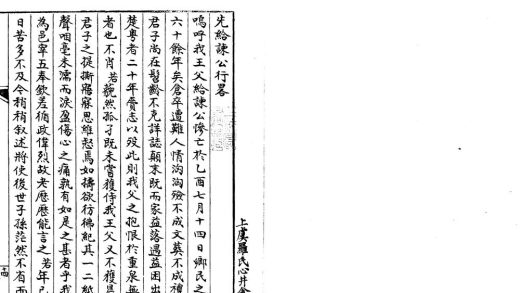 先給諫公行畧
嗚呼我王父給諫公慘亡於乙酉七月十四日鄉民之
六十餘年矣倉卒遭難人情洶洶殮不成文葬不成禮
君子尚在髫齡不克詳誌顛末既而家益落遇益困出
楚粵者二十年賫志以歿此則我父之抱恨於重泉無
者也不肖若覲煢煢孤子既未嘗獲侍我王父又不獲具
君子之提撕寤寐思維怒焉如擣欲彷彿紀其一二紙
聲咽毫未濡而淚盈傷心之痛孰有如是之甚者乎我
為邑宰五奉欽差循政偉烈故老歷歷能言之若年已
日苦多不及今稍稍叙述將使後世子孫茫然不有而
上虞羅氏心井盦
十四